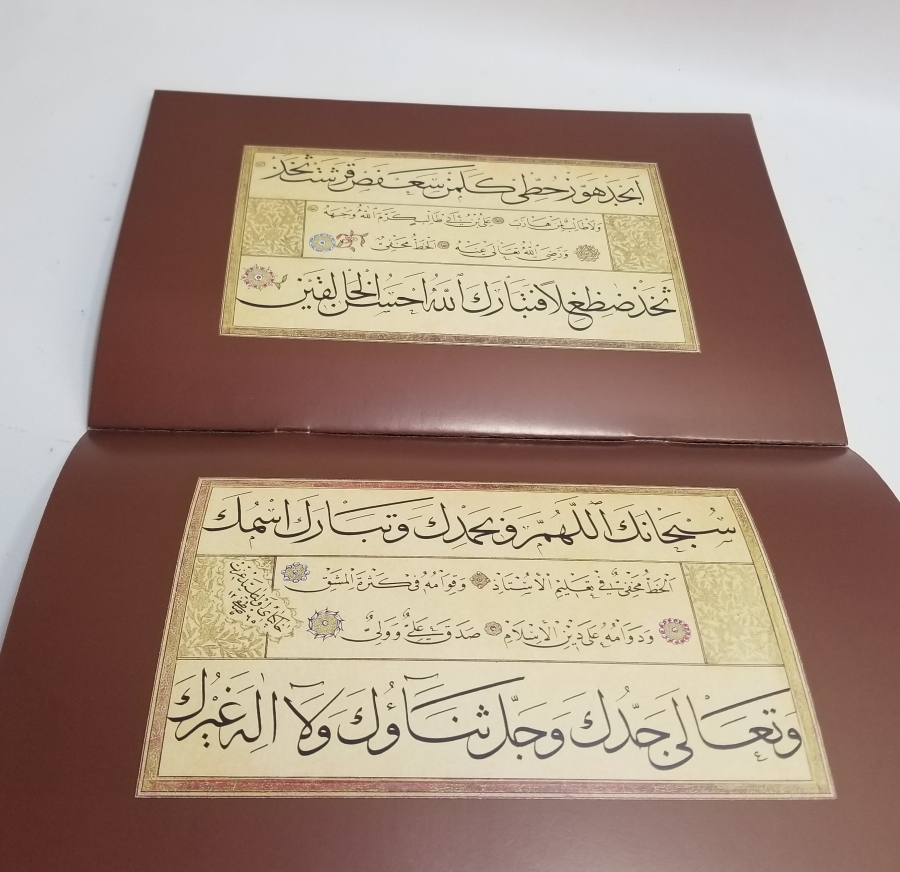 ابجد هوز حطى كلمن سعفص قرشت ثخذ
ولا طالب مثلى هارب على بن ابى طالب كرم الله وجهه
ورضى الله تعالى عنه الخط مخفى
ثخذ ضظغلا فتبارك الله احسن الخالقين
سبحانك اللهم وبحمدك وتبارك اسمك
الخط مخفى فى تعليم الاستاذ وقوامه فى كثرة المشق
ودوامه على دين الاسلام صدق علىّ وولىّ
وتعالى جدك وجل ثناؤك ولا اله غيرك